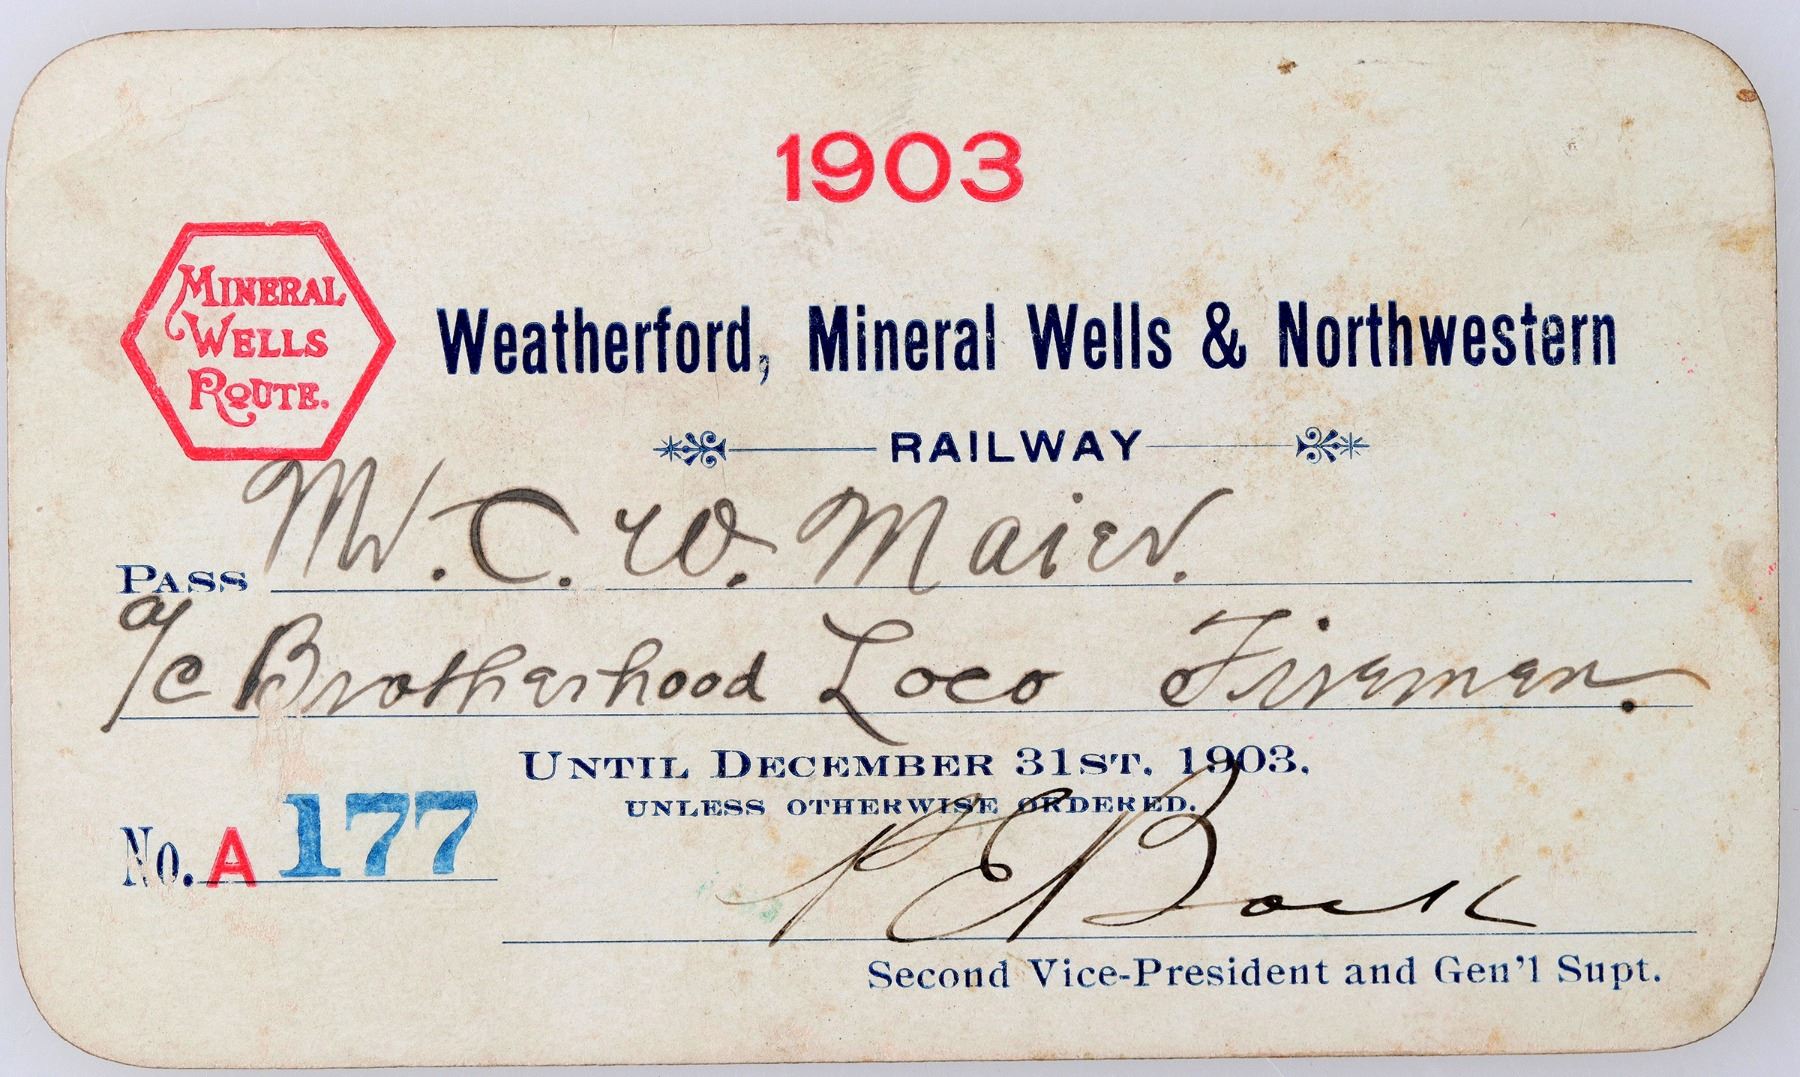 1903
MINERAL
WELLS
ROUTE.
Weatherford, Mineral Wells & Northwestern
RAILWAY
PASS Mr. C. W. Maier.
a/c Brotherhood Loco Firemen.
UNTIL DECEMBER 31ST, 1903.
UNLESS OTHERWISE ORDERED.
No. A 177
P E Bock
Second Vice-President and Gen'l Supt.